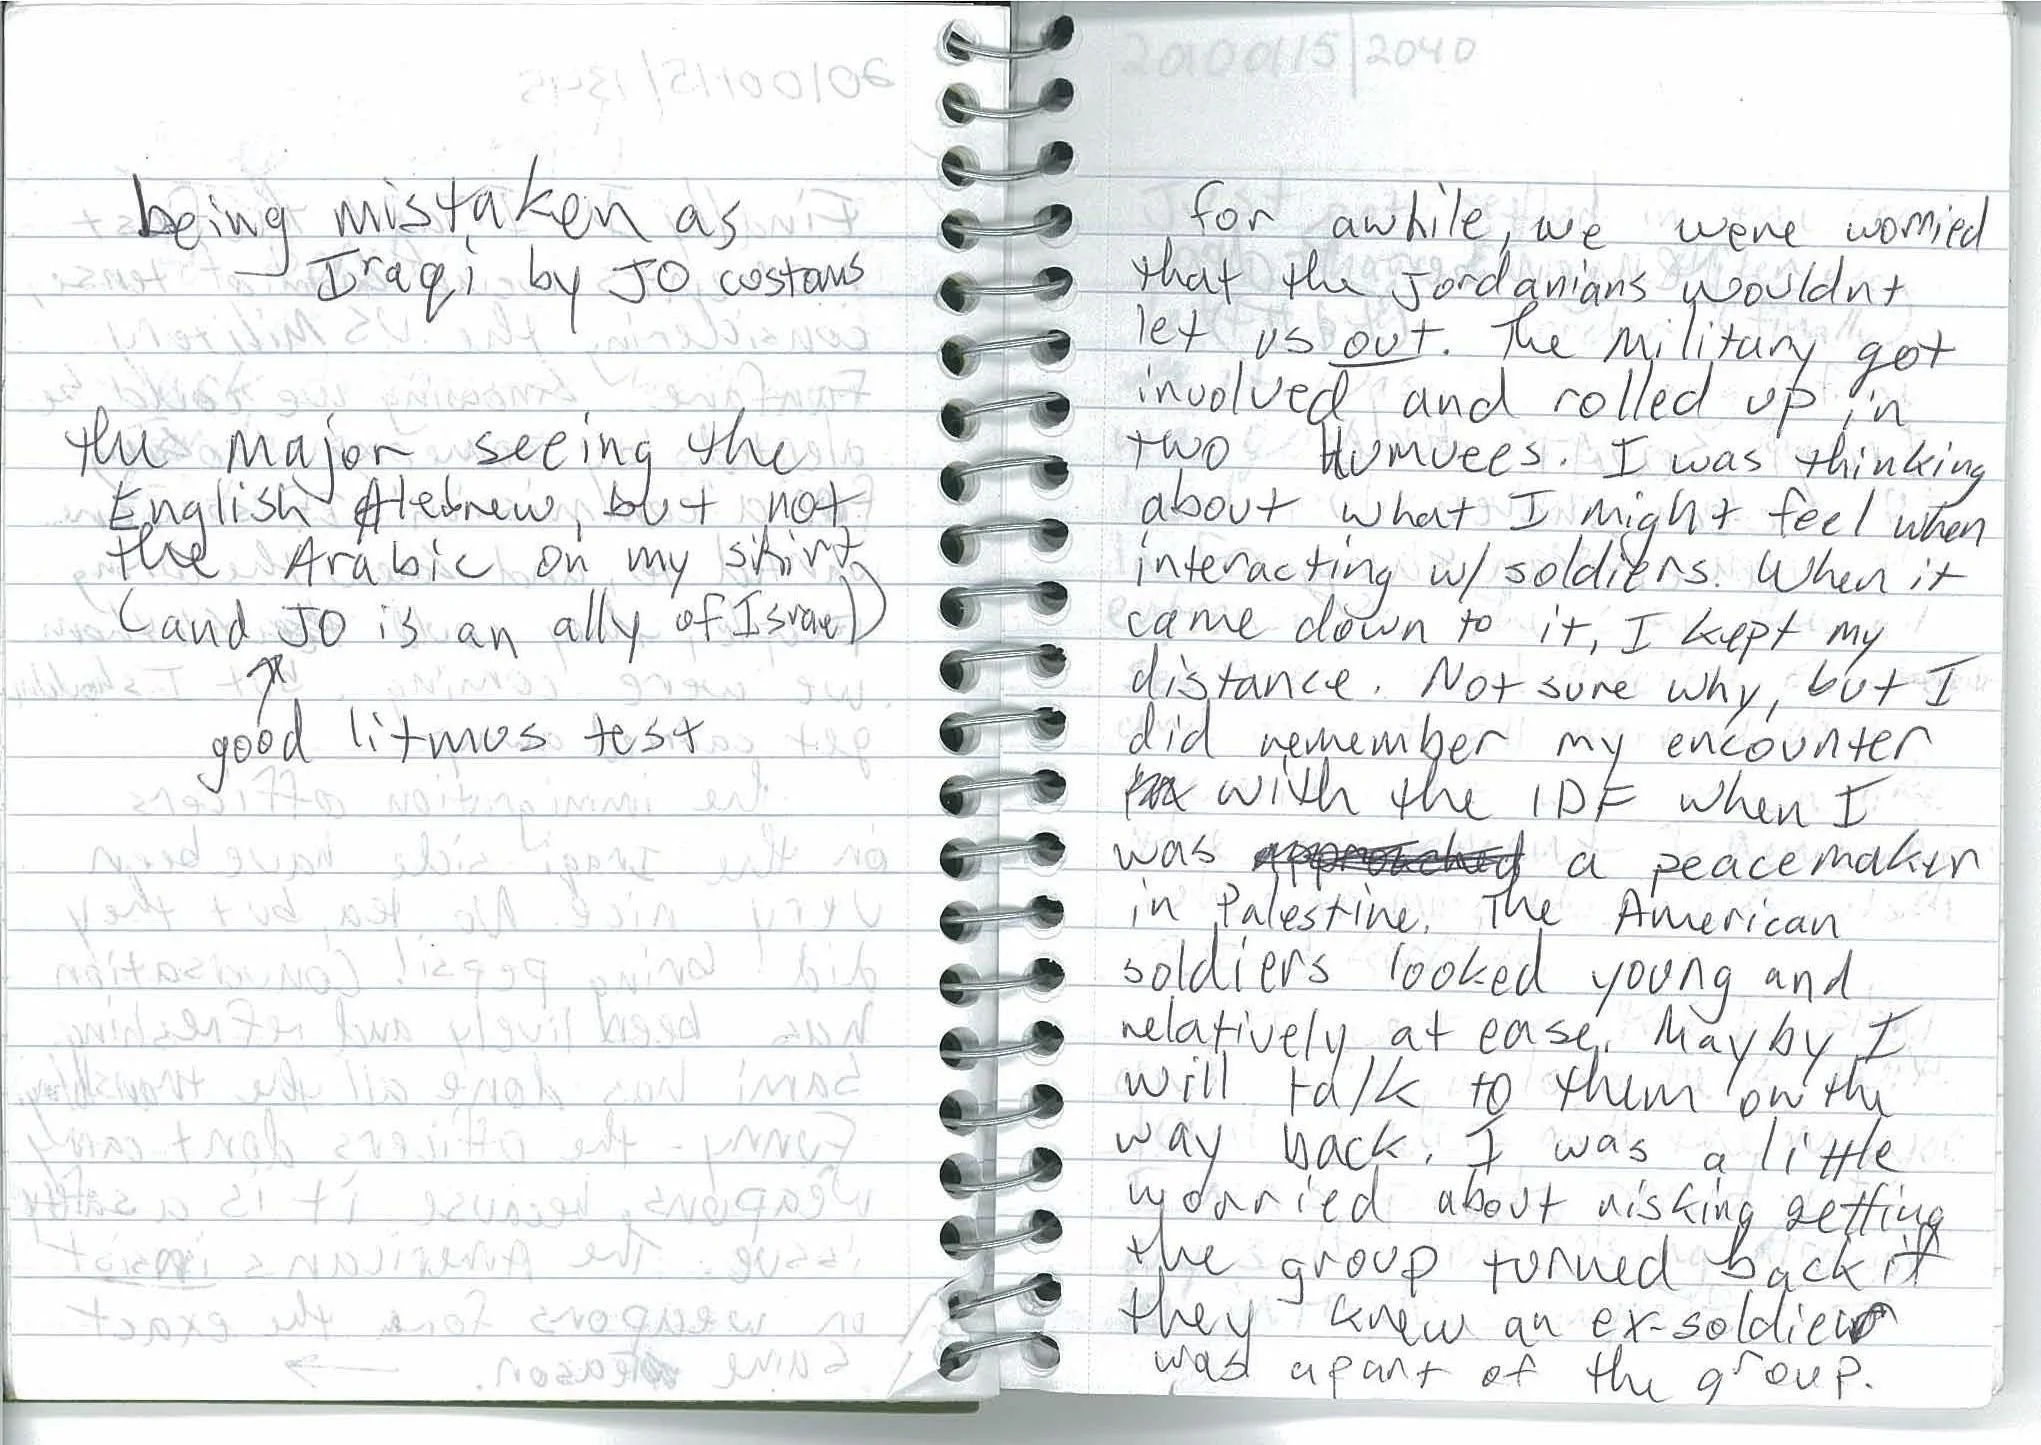 being mistaken as
Iraqi by JO costoms
the Major seeing the
English Hebrew, but not
the Arabic on my shirt
(and JO is an ally of Israel)
good litmus test
2040
for awhile, we were worried
that the Jordanians wouldnt
let us out. The Military got
involved and rolled up in
two Humvees. I was thinking
about what I might feel when
interacting w/ soldiers. When it
came down to it, I kept my
distance. Not sure why, but I
did remember my encounter
with the IDF when I
was approached a peacemaker
in Palestine. The American
soldiers looked young and
relatively at ease. Mayby I
will talk to them on the
way back. I was a little
worried about risking getting
the group turned back if
they knew an ex-soldier
was apart of the group.